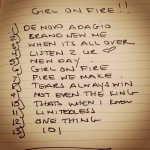 GIRL ON FIRE!!
DE NOVO ADAGIO
BRAND NEW ME
WHEN IT'S ALL OVER
LISTEN 2 UR ♡
NEW DAY
GIRL ON FIRE
FIRE WE MAKE
TEARS ALWAYS WIN
NOT EVEN THE KING
THATS WHEN I KNEW
LIMITEDLESS
ONE THING
101